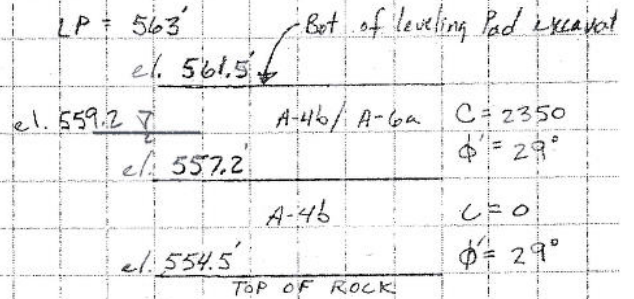 LP = 563'
Bot of leveling Pad excavat
el. 561.5'
el. 559.2 A-4b/A-6a C = 2350
φ' = 29°
el. 557.2'
A-4b C = 0
φ' = 29°
el. 554.5'
TOP OF ROCK